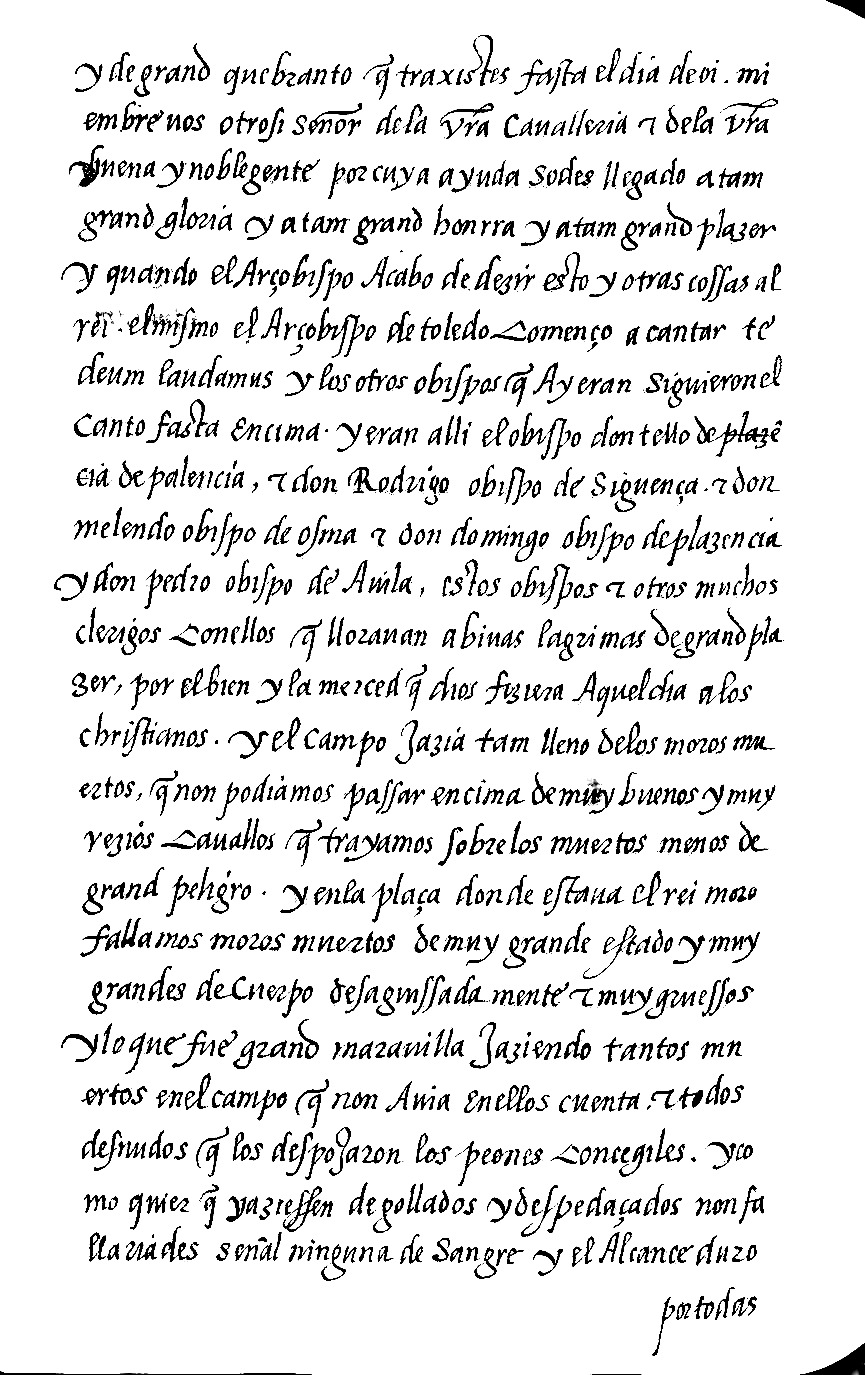 y de grand quebranto q̃ traxistes fasta el dia de oi . mi
embre uos otrosi Señor de la vr̃a Cavalleria τ de la vr̃a
buena y noble gente por cuya ayuda Sodes llegado a tam
grand gloria y a tam grand honrra y a tam grand plazer
y quando el Arçobispo Acabo de dezir esto y otras cossas al
rei . el mismo el Arçobispo de toledo Començo a cantar te
deum laudamus y los otros obispos q̃ Ay eran Siguieron el
Canto fasta Encima . y eran alli el obispo don tello de plazẽ
cia de palencia , τ don Rodrigo obispo de Siguença . τ don
melendo obispo de osma τ don domingo obispo de plazencia
y don pedro obispo de Auila , estos obispos τ otros muchos
clerigos Con ellos q̃ llorauan a biuas lagrimas de grand pla
zer , por el bien y la merced q̃ dios fiziera Aquel dia a los
christianos . y el Campo Jazia tam lleno de los moros mu
ertos , q̃ non podiamos passar encima de muy buenos y muy
rezios Cauallos q̃ trayamos sobre los muertos menos de
grand peligro . y en la plaça donde estaua el rei moro
fallamos moros muertos de muy grande estado y muy
grandes de Cuerpo desaguissada mente τ muy gruessos
y lo que fue grand marauilla Jaziendo tantos mu
ertos en el campo q̃ non Auia En ellos cuenta . τ todos
desnudos q̃ los despoJaron los peones Concegiles . y co
mo quier q̃ yaziessen degollados y despedaçados non fa
llariades señal ninguna de Sangre y el Alcance duro
por todas